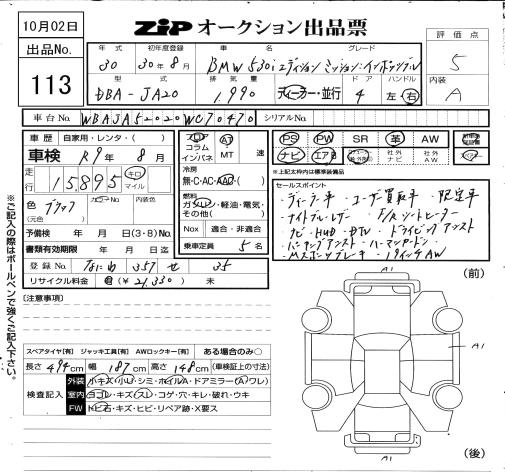 10月02日
ZIP オークション出品票
評価点
5
内装
A
出品No.
113
年式 初年度登録 車名 グレード
30 30年8月 BMW 530i エディションミッションインポッシブル
型式 排気量 ドア ハンドル
DBA-JA20 1,990 ディーラー・並行 4 左・右
車台No. WBAJA52020WC70470 シリアルNo.
車歴 自家用・レンタ・( )
車検 R9年8月
走行 15895 キロ マイル
色 ブラック
(元色)
カラーNo. 内装色
予備検 年 月 日(3・8)No.
書類有効期限 年 月 日迄
登録No. 357 せ 35
リサイクル料金 (¥21,330) 未
コラム
インパネ
AT
MT
速
冷房
無・C・AC・AAC・( )
燃料
ガソリン・軽油・電気・
その他( )
Nox 適合・非適合
乗車定員 5名
PS PW SR 革 AW
ナビ エアB 社外ナビ 社外AW
※上記太枠内は標準装備品
セールスポイント
ディーラー車 ユーザー買取車 限定車
ナイトブルーレザー F/Rシートヒーター
ナビ HUD DTV ドライビングアシスト
パーキングアシスト ハーマンカードン
Mスポーツブレーキ 19インチAW
※ご記入の際はボールペンで強くご記入下さい。
[注意事項]
スペアタイヤ[有] ジャッキ工具[有] AWロックキー[有] ある場合のみ○
長さ494cm 幅187cm 高さ148cm (車検証上の寸法)
検査記入
外装 小キズ・小U・シミ・ホイルA・ドアミラー(A ワレ)
室内 ヨゴレ・キズ・スレ・コゲ・穴・キレ・破れ・ウキ
FW トビ石・キズ・ヒビ・リペア跡・X要ス
(前)
A1
A1
A1
(後)